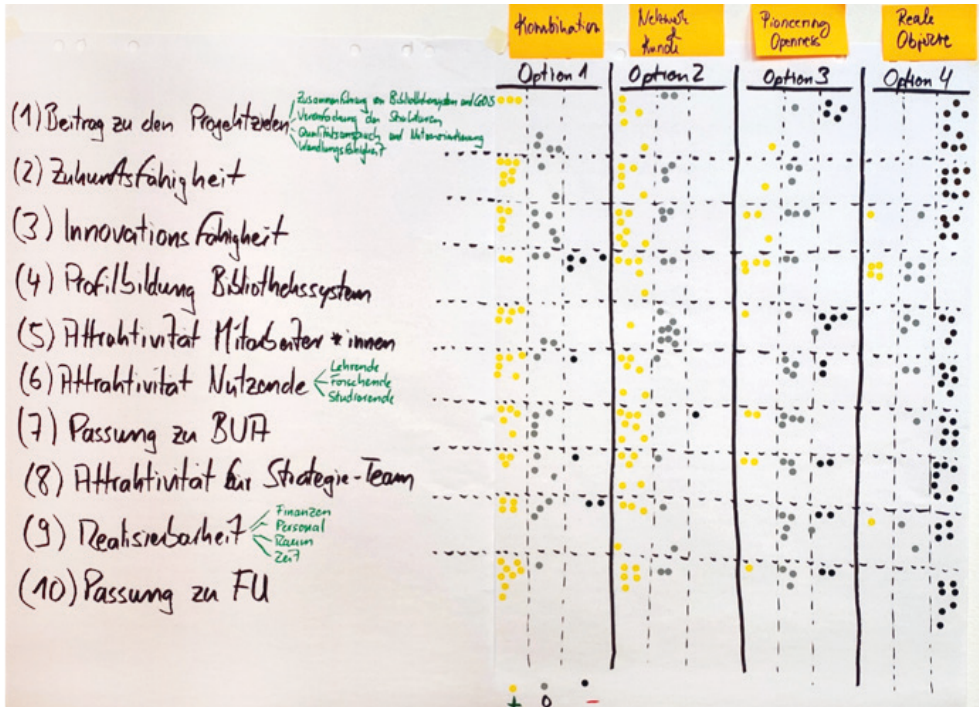 Kombination
Netzwerk
&
Kunde
Pioneering
Openness
Reale
Objekte
Option 1
Option 2
Option 3
Option 4
(1) Beitrag zu den Projektzielen
Zusammenführung von Bibliothekssystem und CeDiS
Vereinfachung der Strukturen
Qualitätsanspruch und Nutzerorientierung
Wandlungsfähigkeit
(2) Zukunftsfähigkeit
(3) Innovationsfähigkeit
(4) Profilbildung Bibliothekssystem
(5) Attraktivität Mitarbeiter*innen
(6) Attraktivität Nutzende
Lehrende
Forschende
Studierende
(7) Passung zu BUA
(8) Attraktivität für Strategie-Team
(9) Realisierbarkeit
Finanzen
Personal
Raum
Zeit
(10) Passung zu FU
+ 0 -